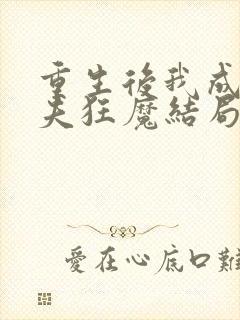 重生後我成
夫狂魔結局
愛在心底口難